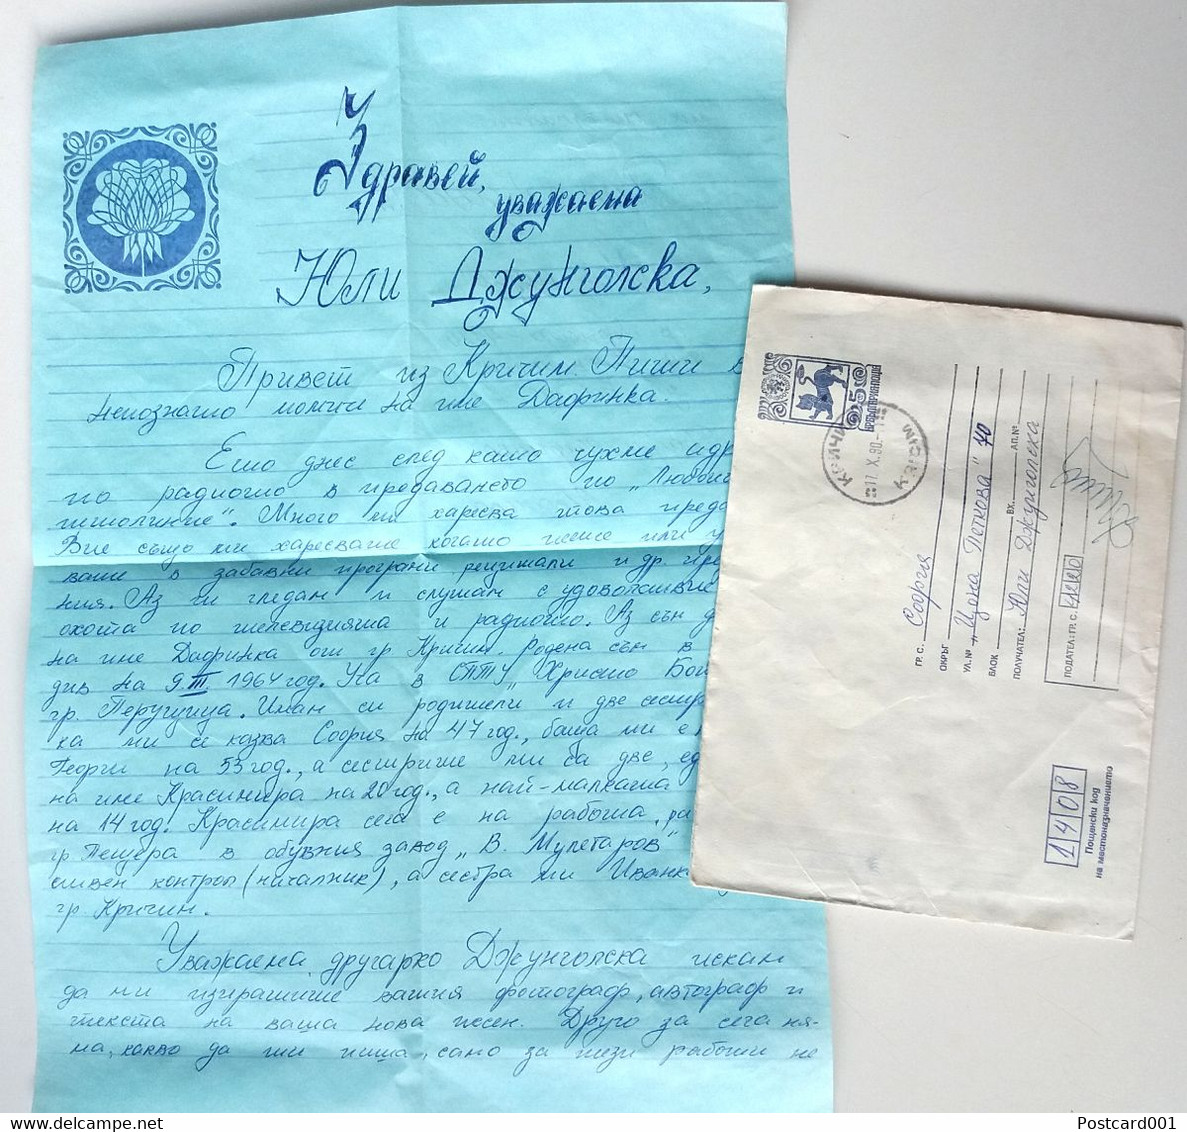 Здравей,
уважаема
Юли Джунголска,
Привет из Кричим. Пише
непознато момиче на име Дафинка.
Ето днес след като чухме
по радиото в предаването по „Любопит
питолиние". Много ми харесва това преда
Вие също ми харесвате когато пеете или
вате в забавни програми рецитали и др. пре
ния. Аз ви гледам и слушам с удоволствие
охота по телевизията и радиото. Аз съм
на име Дафинка от гр. Кричим. Родена съм в
див на 9 III 1964 год. Уча в СПТУ „Христо Бо
гр. Перущица. Имам си родители и две сестри
ка ми се казва София на 47 год., баща ми е
Георги на 53 год., а сестрите ми са две, ед
на име Красимира на 20 год., а най-малката
на 14 год. Красимира сега е на работа, ра
гр. Пещера в обувния завод „В. Мулетаров"
контрол (началник), а сестра ми Иванка
гр. Кричим.
Уважаема другарко Джунголска искам
да ми изпратите вашия фотограф, автограф и
текста на ваша нова песен. Друго за сега ня-
ма, какво да ти пиша, само за тези работи не
5
НРБЪЛГАРИЯ ПОЩА
КРИЧИМ
17.X.80.
KRICIM
ГР. С. София
ОКРЪГ
УЛ. № „Цона Петкова" 40
БЛОК ВХ. АП. №
ПОЛУЧАТЕЛ: Юли Джунголска
ПОДАТЕЛ: ГР. С.
1408
Пощенски код
на местоназначението
www.delcampe.net
Postcard001